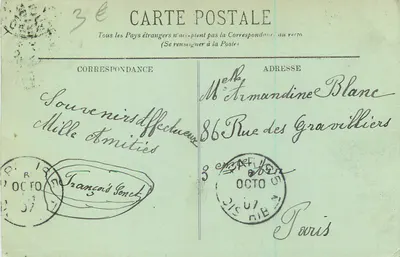 3€
CARTE POSTALE
Tous les Pays étrangers n'acceptent pas la Correspondance au recto
(Se renseigner à la Poste)
CORRESPONDANCE
ADRESSE
Souvenirs affectueux
Mille Amitiés
François
Melle Armandine Blanc
86 Rue des Gravilliers
3
Paris
OCTO
07
PARIS
6
OCTO
07